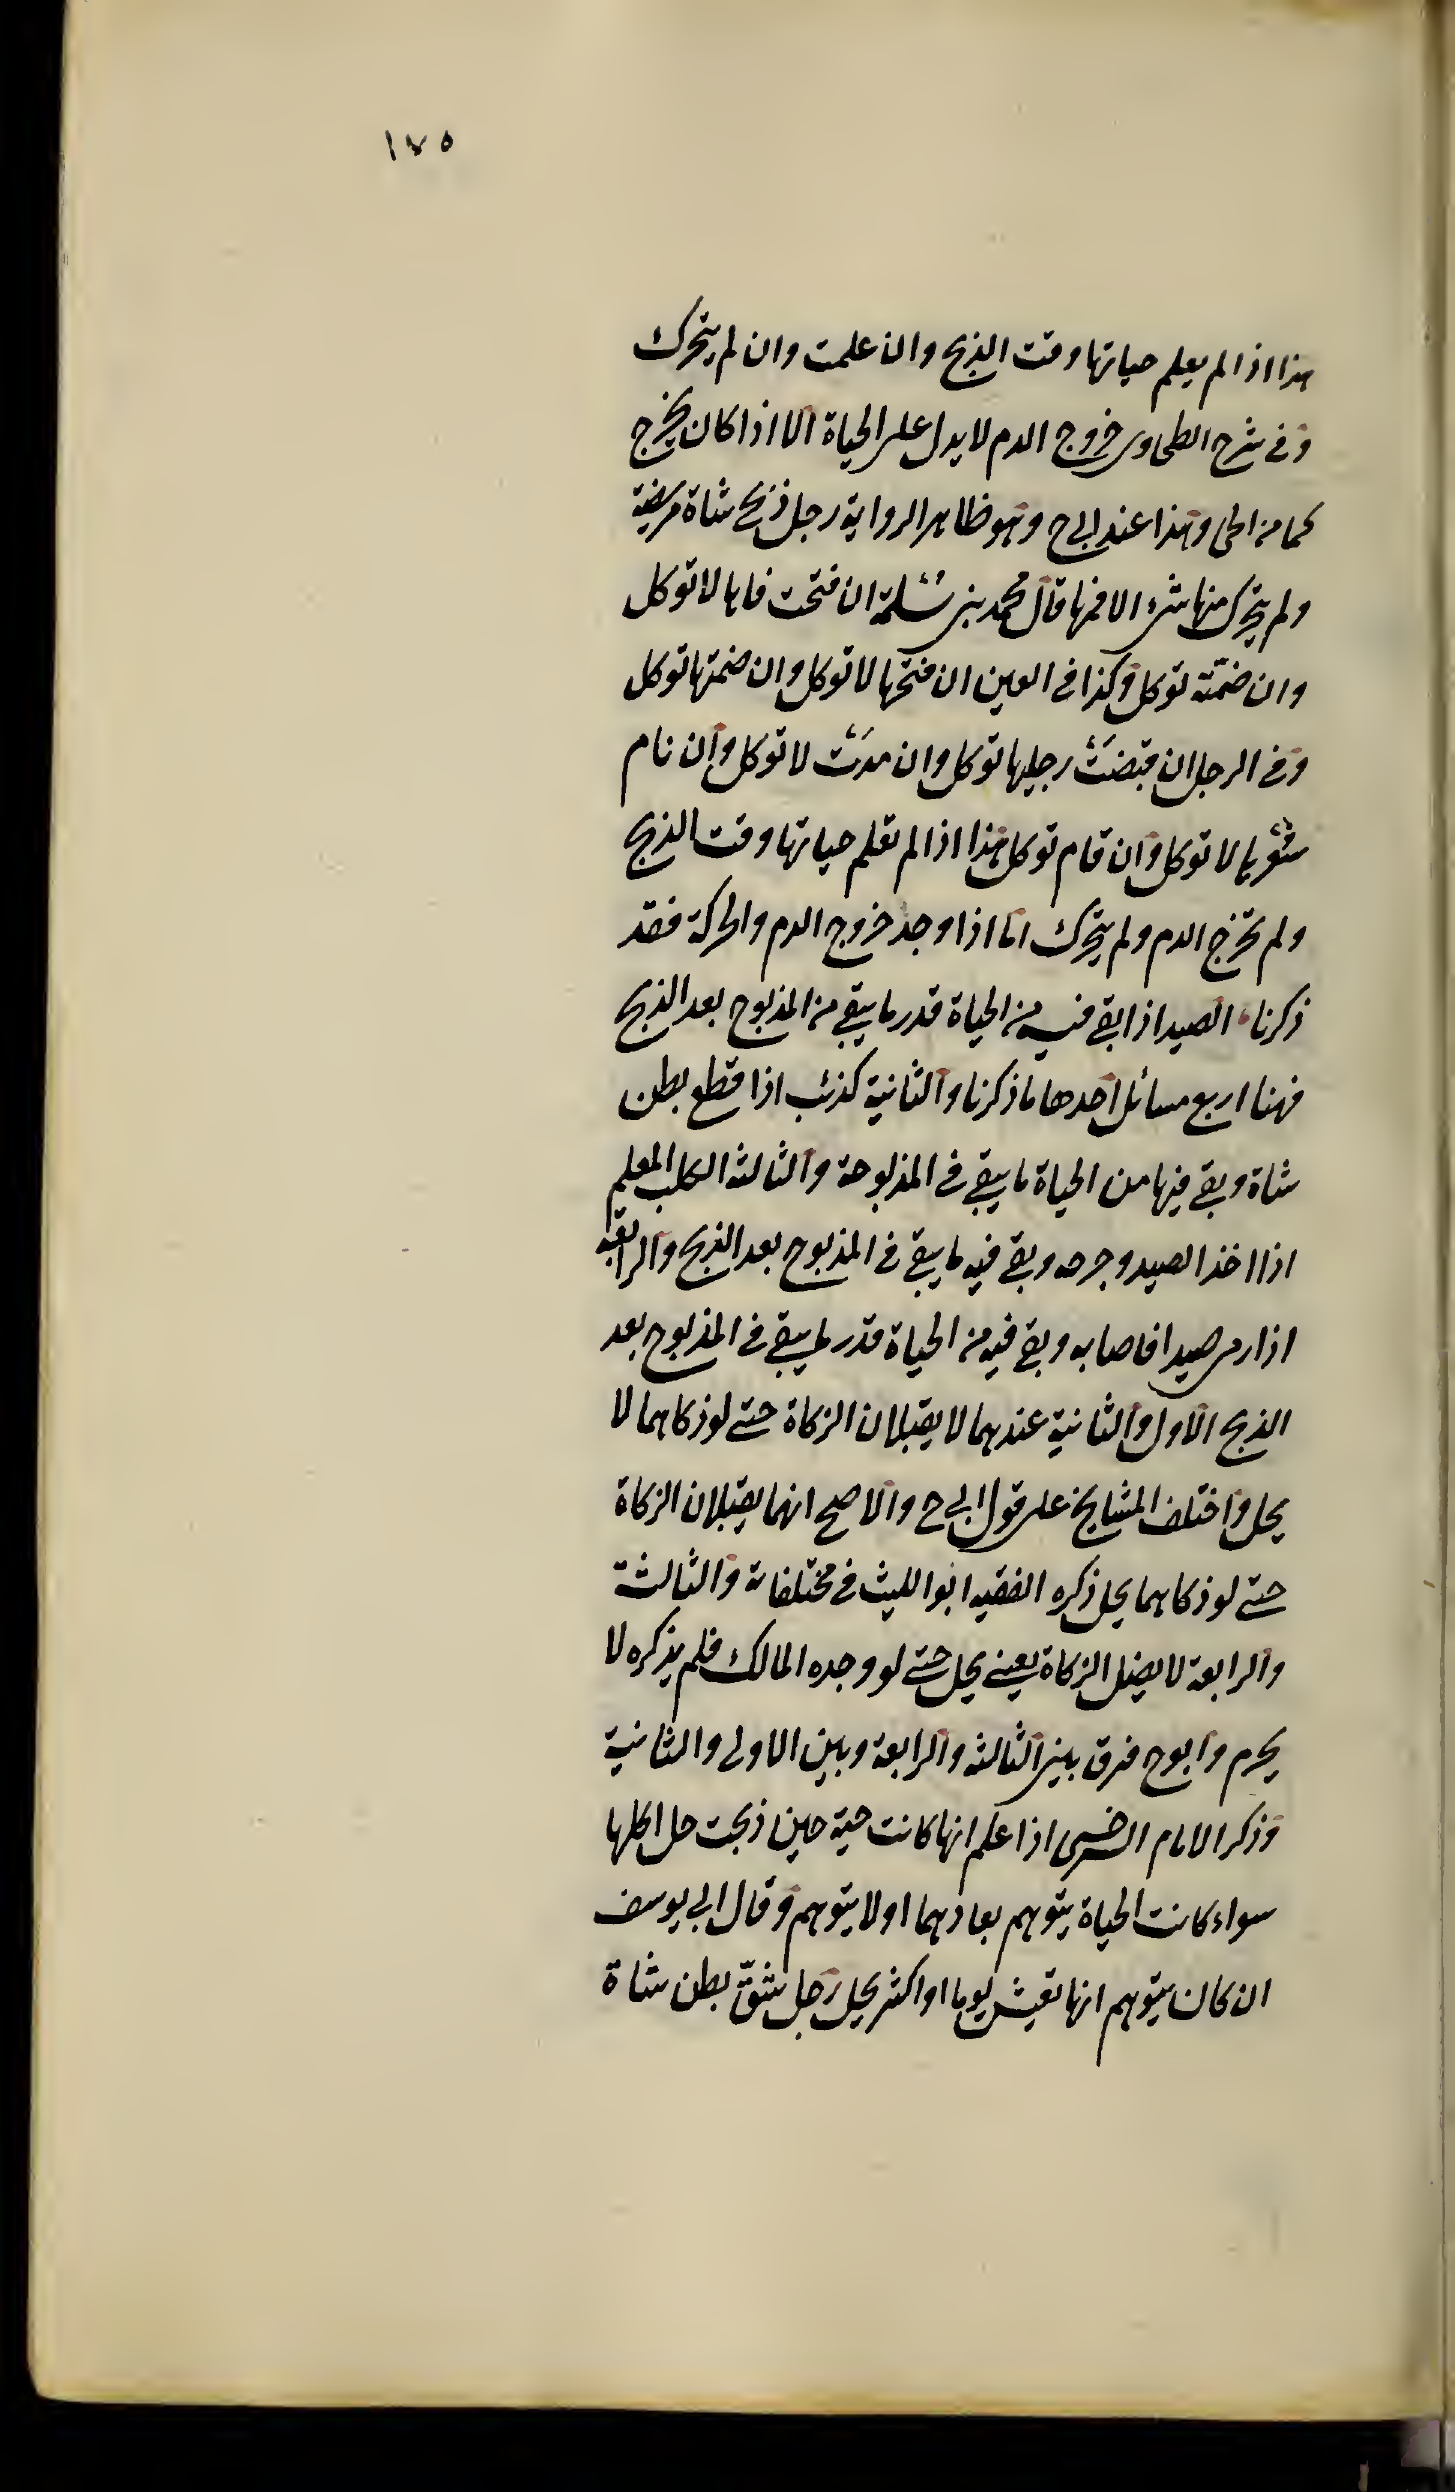 ١٧٥
هذا اذا لم يعلم حياتها وقت الذبح وان علمت وان لم يتحرك
وفى شرح الطحاوى خروج الدم لا يدل على الحياة الا اذا كان يخرج
كما من الحى وهذا عند ابى ح وهو ظاهر الرواية رجل ذبح شاة مريضة
ولم يتحرك منها شئ الا فمها قال محمد بن سلمة ان فتحت فاها لا توكل
وان ضمته توكل وكذا فى العين ان فتحها لا توكل وان ضمتها توكل
وفى الرجل ان قبضت رجليها توكل وان مدت لا توكل وان نام
شعرها لا توكل وان قام توكل هذا اذا لم تعلم حياتها وقت الذبح
ولم تخرج الدم ولم يتحرك اما اذا وجد خروج الدم والحركة فقد
ذكرنا الصيد اذا بقى فيه من الحياة قدر ما يبقى من المذبوح بعد الذبح
فهنا اربع مسائل احدها ما ذكرنا والثانية كذئب اذا قطع بطن
شاة وبقى فيها من الحياة ما يبقى فى المذبوحة والثالثة الكلب المعلم
اذا اخذ الصيد وجرحه وبقى فيه ما يبقى فى المذبوح بعد الذبح والرابعة
اذا رمى صيدا فاصابه وبقى فيه من الحياة قدر ما يبقى فى المذبوح بعد
الذبح الاول والثانية عندهما لا يقبلان الزكاة حتى لو ذكاهما لا
يحل واختلف المشايخ على قول ابى ح والاصح انهما يقبلان الزكاة
حتى لو ذكاهما يحل ذكره الفقيه ابو الليث فى مختلفاته والثالثة
والرابعة لا يصل الزكاة يعنى يحل حتى لو وجده المالك فلم يذكره لا
يحرم وابوح فرق بين الثالثة والرابعة وبين الاولى والثانية
وذكر الامام السرخسى اذا علم انها كانت حية حين ذبحت حل اكلها
سواء كانت الحياة يتوهم بقاؤهما او لا يتوهم وقال ابى يوسف
ان كان يتوهم انها تعيش يوما او اكثر يحل رجل شق بطن شاة